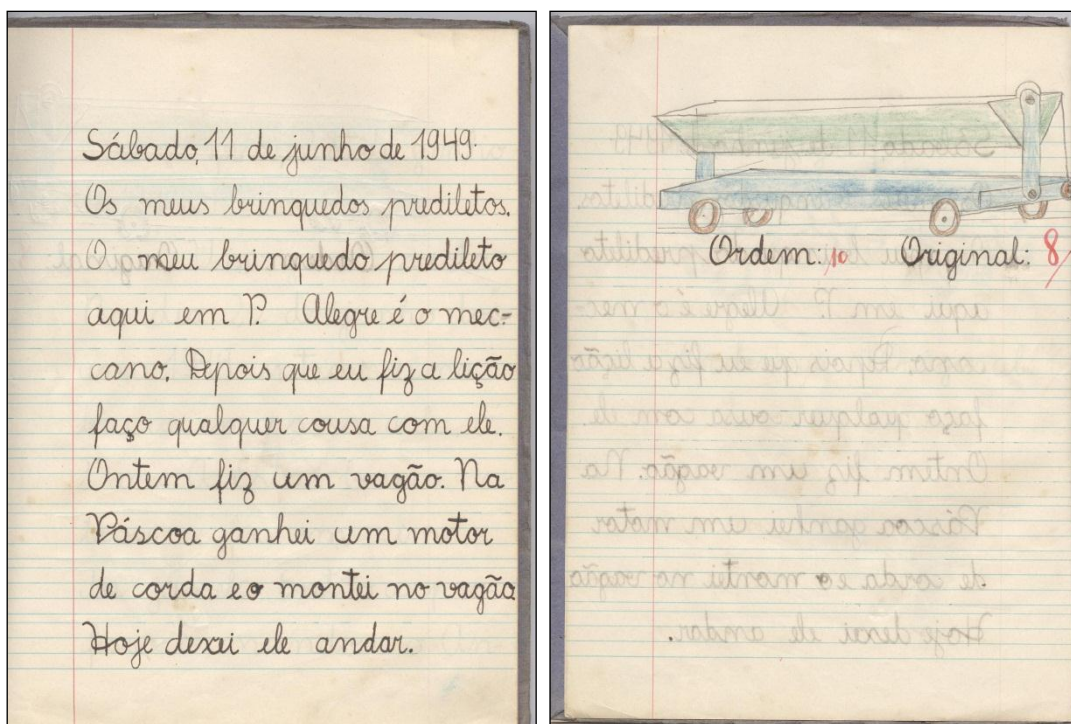 Sábado, 11 de junho de 1949.
Os meus brinquedos prediletos.
O meu brinquedo predileto
aqui em P. Alegre é o mec-
cano. Depois que eu fiz a lição
faço qualquer cousa com ele.
Ontem fiz um vagão. Na
Páscoa ganhei um motor
de corda e o montei no vagão
Hoje dexei ele andar.
Ordem: 10 Original: 8